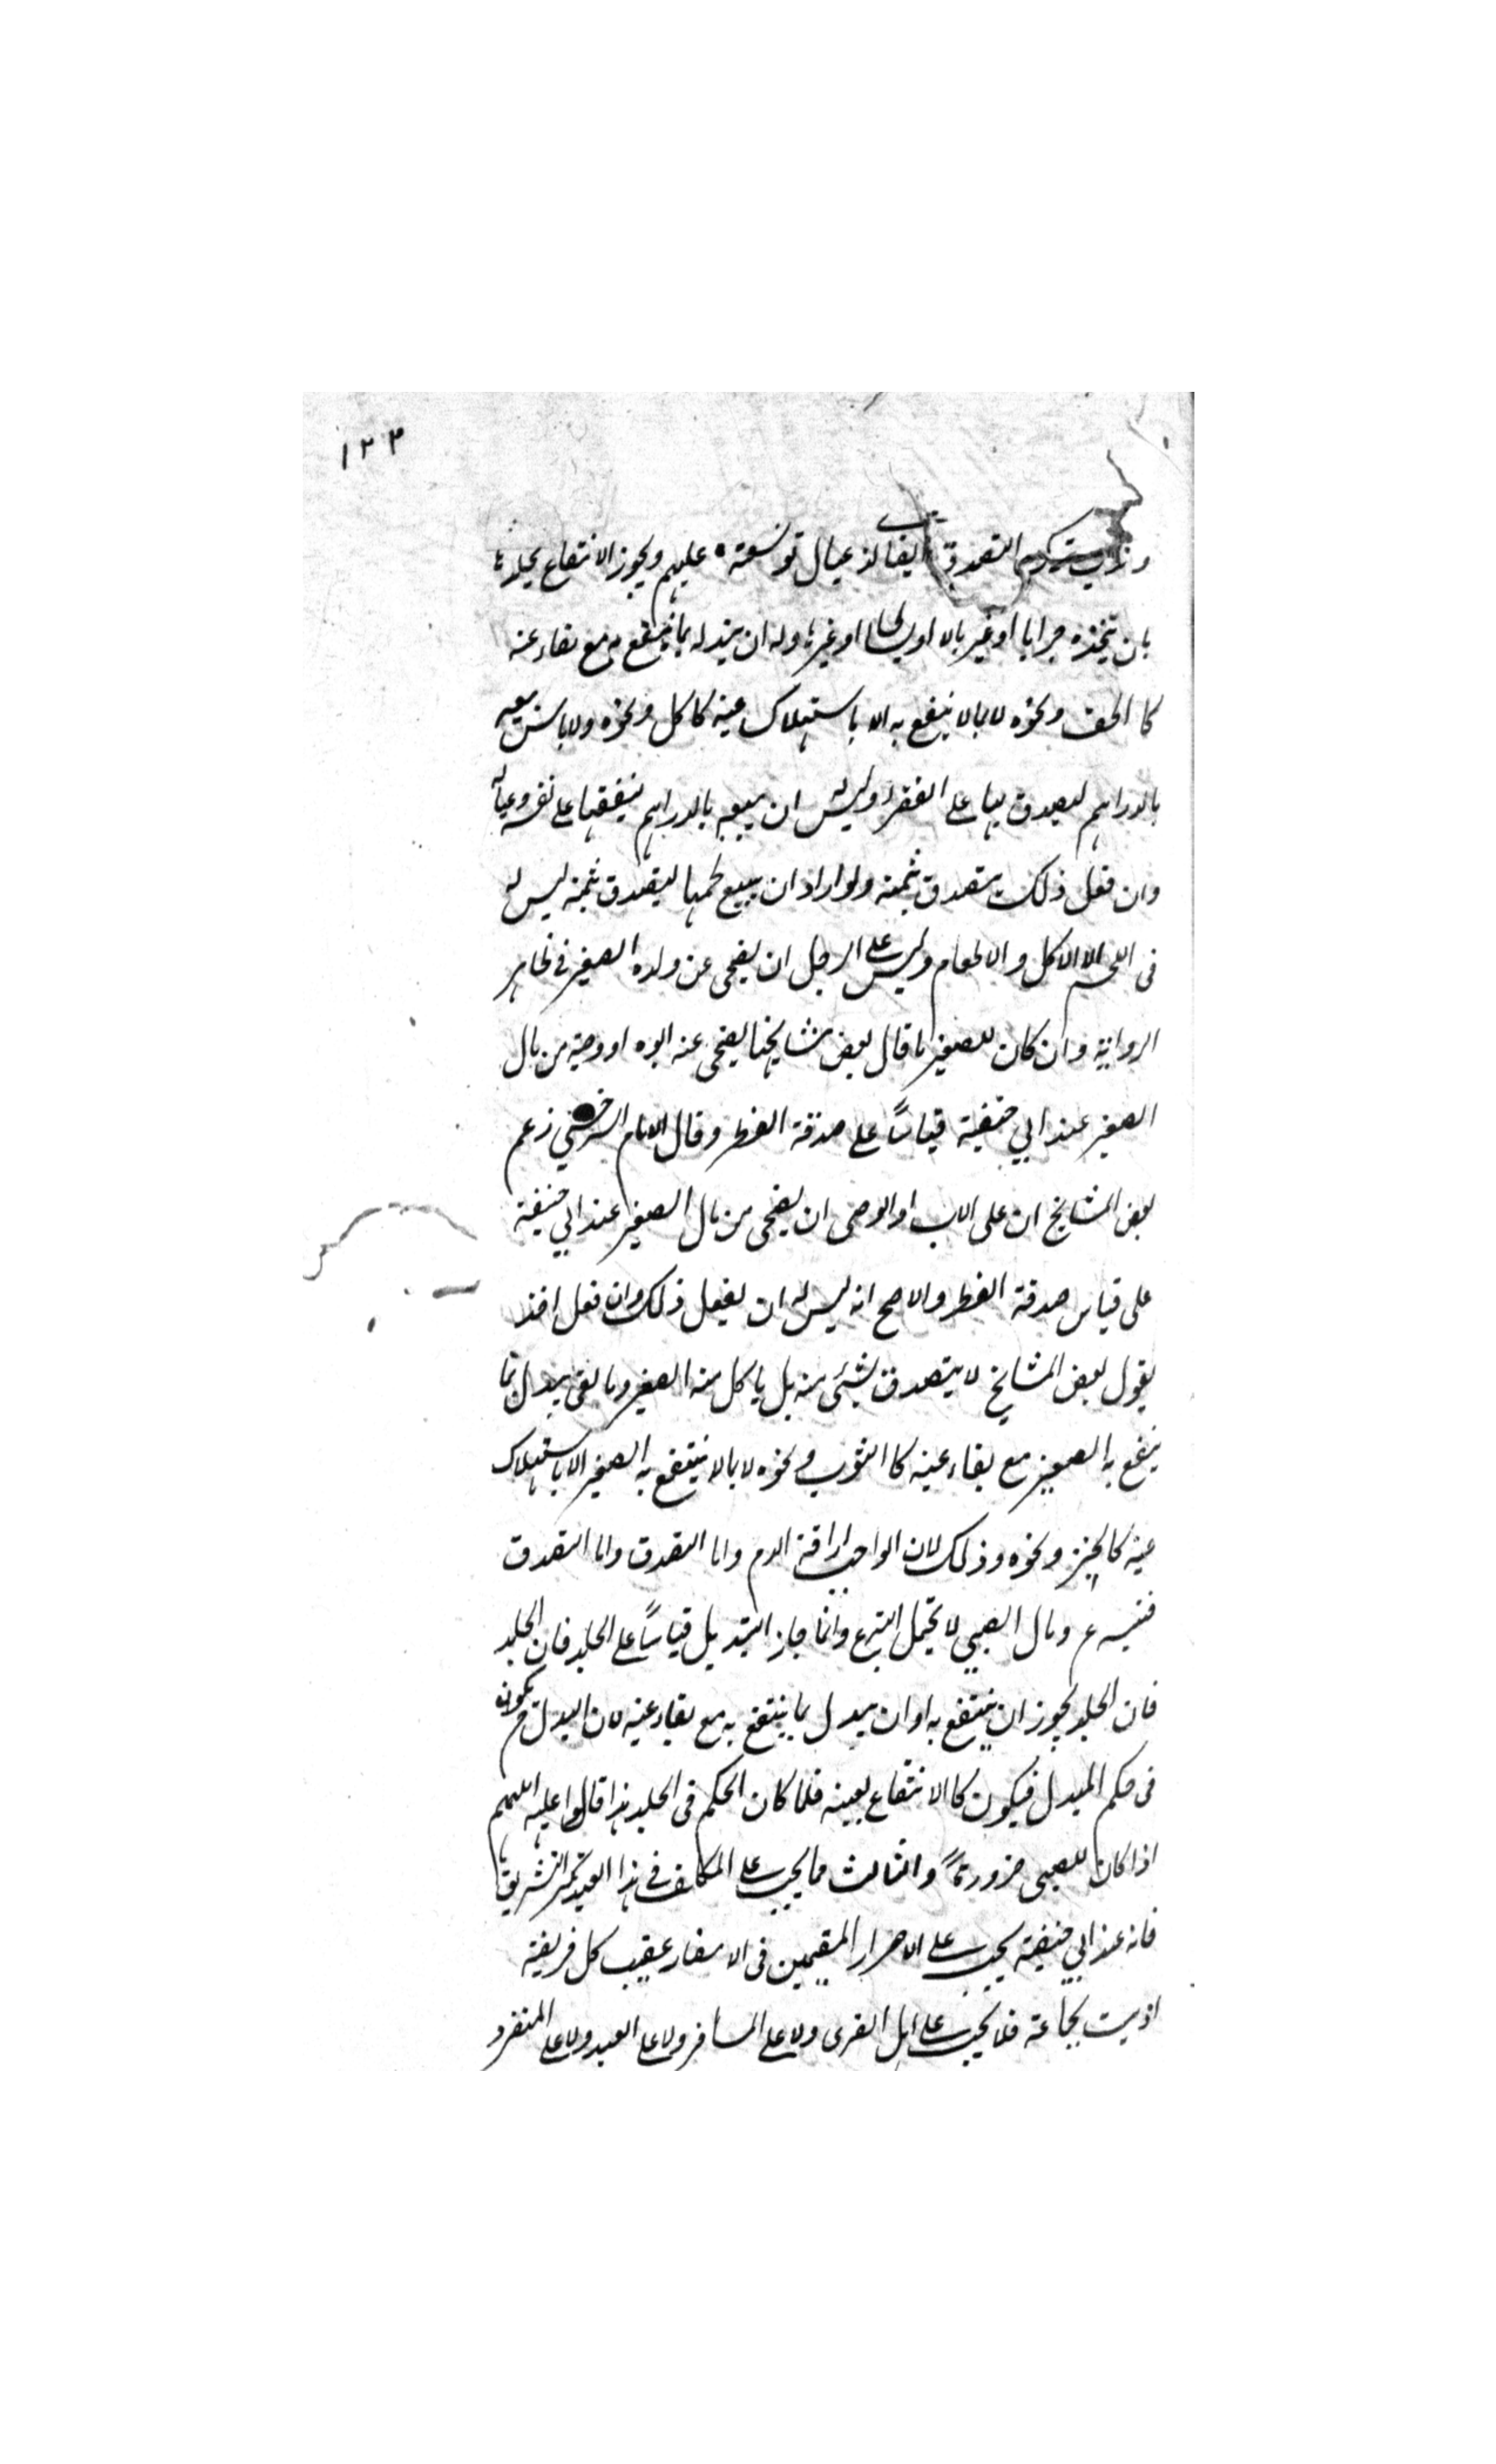 ١٣٣
وندب تركه التصدق ايضا لذ عيال توسعة عليهم ويجوز الانتفاع بجلدها
بان يتخذه جرابا او غربالا او لحافا او غيرها وله ان يبدله بما ينتفع به مع بقاء عينه
كا الخف ونحوه لا بما لا ينتفع به الا باستهلاك عينه كا كل ونحوه ولا باس ببيعه
بالدراهم ليصدق بها على الفقراء وليس له ان يبيعه بالدراهم لينفقها على نفسه وعياله
وان فعل ذلك يتصدق بثمنه ولو اراد ان يبيع لحمها ليتصدق بثمنه ليس له
فى اللحم الا الاكل والاطعام وليس على الرجل ان يضحى عن ولده الصغير فى ظاهر
الرواية وان كان للصغير ما قال بعض مشايخنا يضحى عنه ابوه او وصيه من مال
الصغير عند ابي حنيفة قياسًا على صدقة الفطر وقال الامام السرخسي زعم
بعض المشايخ ان على الاب او الوصى ان يضحى من مال الصغير عند ابي حنيفة
على قياس صدقة الفطر والاصح انه ليس له ان يفعل ذلك وان فعل اخذ
بقول بعض المشايخ لا يتصدق بشيئى منه بل ياكل منه الصغير وما بقى يبدل بما
ينتفع به الصغير مع بقاء عينه كا الثوب ونحوه لا بما لا ينتفع به الصغير الا باستهلاك
عينه كالخبز ونحوه وذلك لان الواجب اراقة الدم واما التصدق واما التصدق
فتبرع ومال الصبي لا تحمل التبرع وانما جاز التبديل قياسًا على الجلد فان الجلد
فان الجلد يجوز ان ينتفع به او ان يبدل بما ينتفع به مع بقاء عينه لان البدل ح يكون
فى حكم المبدل فيكون كا الانتفاع بعينه فلما كان الحكم فى الجلد هذا قالوا عليه اللحم
اذا كان للصبى ضرورةً والثالث مما يجب على المكلف فى هذا العيد تكبير التشريق
فانه عند ابي حنيفة يجب على الاحرار المقيمين فى الامصار عقيب كل فريضة
اديت بجماعة فلا يجب على اهل القرى ولا على المسافر ولا على العبد ولا على المنفرد